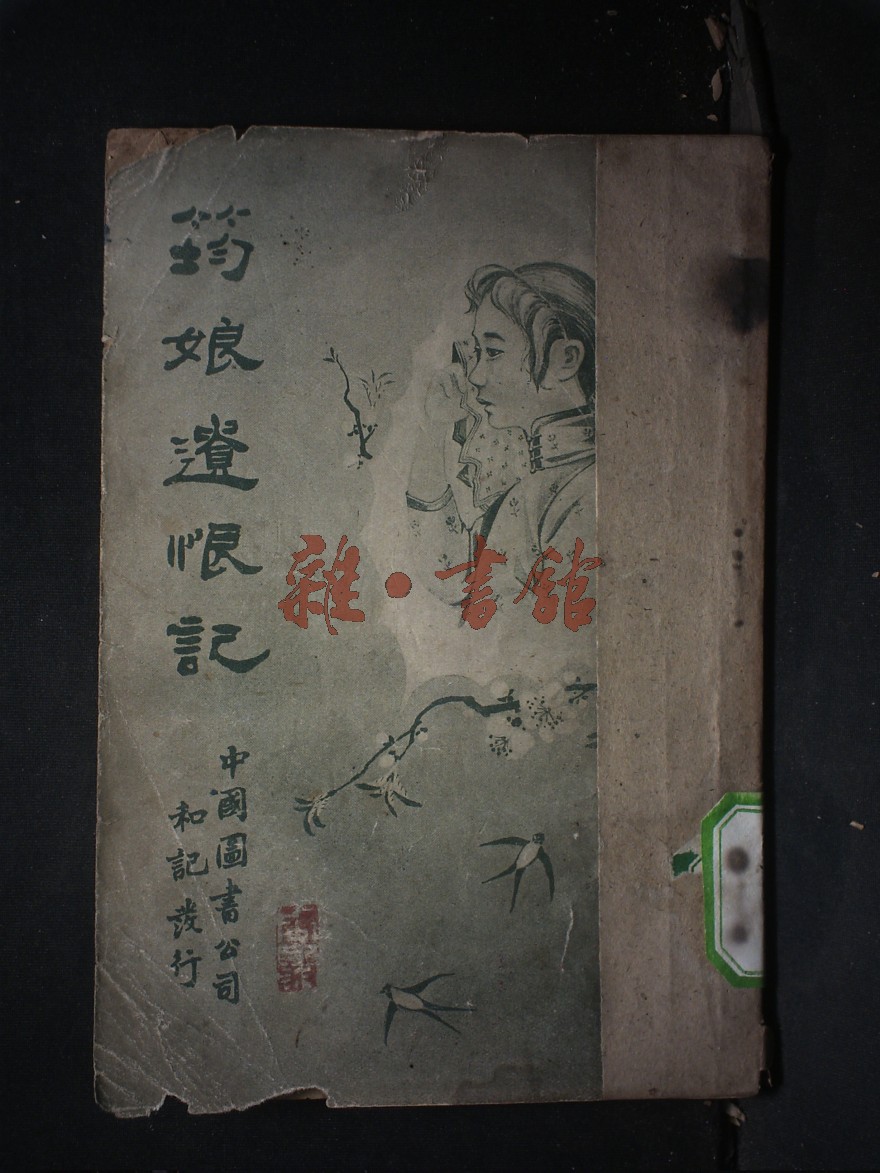 筠娘遺恨記
中國圖書公司
和記發行
雜·書館